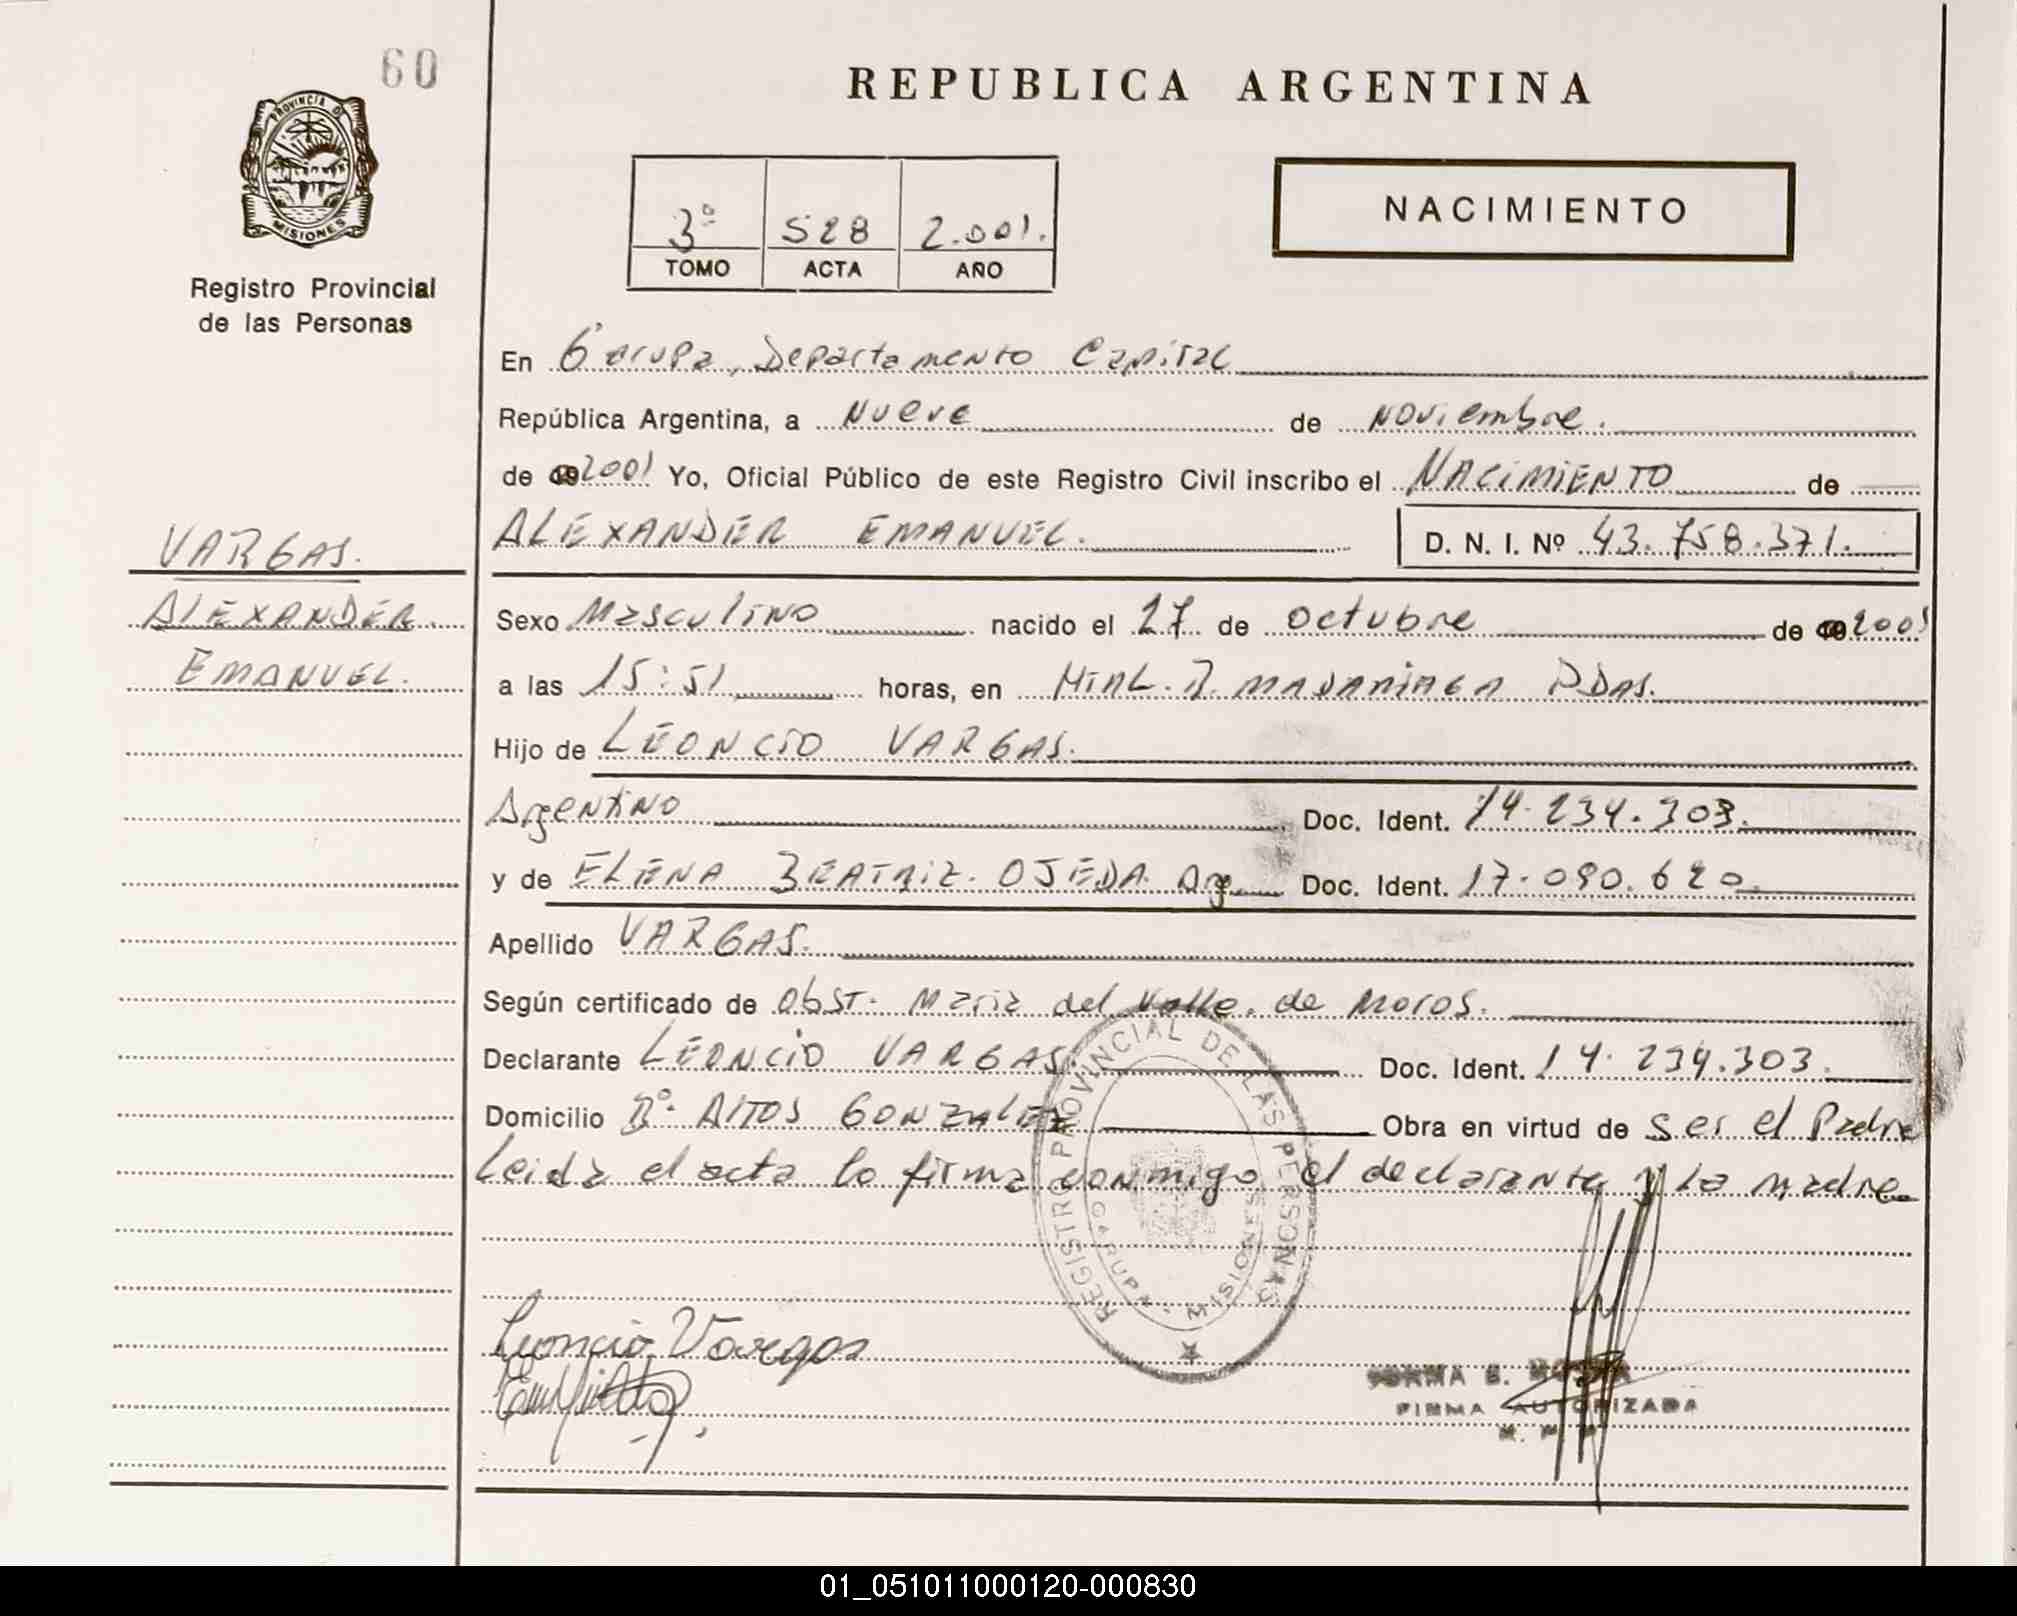 60
PROVINCIA DE
MISIONES
Registro Provincial
de las Personas
REPUBLICA ARGENTINA
3º 528 2.001.
TOMO ACTA AÑO
NACIMIENTO
En Garupa, Departamento Capital
República Argentina, a Nueve de Noviembre.
de 2001 Yo, Oficial Público de este Registro Civil inscribo el NACIMIENTO de
ALEXANDER EMANUEL. D. N. I. Nº 43.758.371.
VARGAS.
ALEXANDER.
EMANUEL.
Sexo Masculino nacido el 27 de octubre de 2001
a las 15:51 horas, en R. MADARIAGA PDAS.
Hijo de LEONCIO VARGAS.
Argentino Doc. Ident. 14.234.303.
y de ELENA BEATRIZ. OJEDA. Arg. Doc. Ident. 17.090.620.
Apellido VARGAS.
Según certificado de obst. Maria del Valle. de Moros.
Declarante LEONCIO VARGAS. Doc. Ident. 14.234.303.
Domicilio Bº. ALTOS GONZALEZ Obra en virtud de ser el Padre
Leida el acta lo firma conmigo el declarante y la madre
REGISTRO PROVINCIAL DE LAS PERSONAS
GARUPA - MISIONES
Leoncio Vargas
NORMA B.
FIRMA AUTORIZADA
01_051011000120-000830